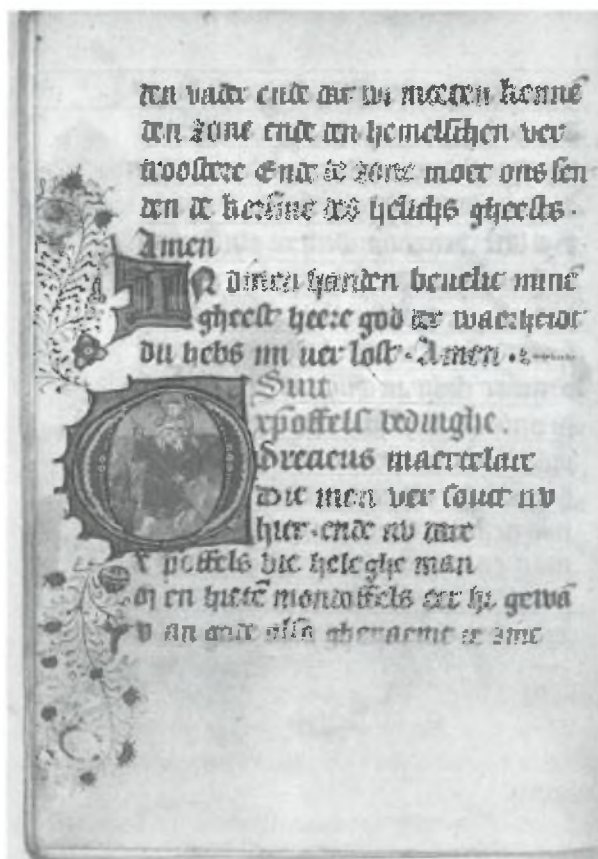 den vader ende dat wi moeten kennē
den zone ende den hemelschen ver
trooster Ende de zone moet ons sen
den de kersūne des heilichs gheests.
Amen
IN dinen handen beuelic minē
gheest heere god der waerheide
du hebs mi uerlost. Amen.
Suit
xpoffels bedinghe.
O dreacus maertelaer
die men ver souct nv
hier. ende nv dare
xpoffels die heleghe man
en hiete